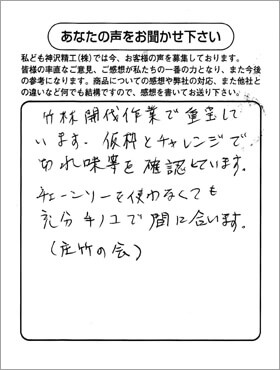 あなたの声をお聞かせ下さい
私ども神沢精工(株)では今、お客様の声を募集しております。
皆様の率直なご意見、ご感想が私たちの一番の力となり、また今後
の参考になります。商品についての感想や弊社の対応、また他社と
の違いなど何でも結構ですので、感想を書いてお送り下さい。
竹林開伐作業で重宝して
います。仮枠とチャレンジで
切れ味等を確認しています。
チェーンソーを使わなくても
充分
で間に合います。
(庄竹の会)